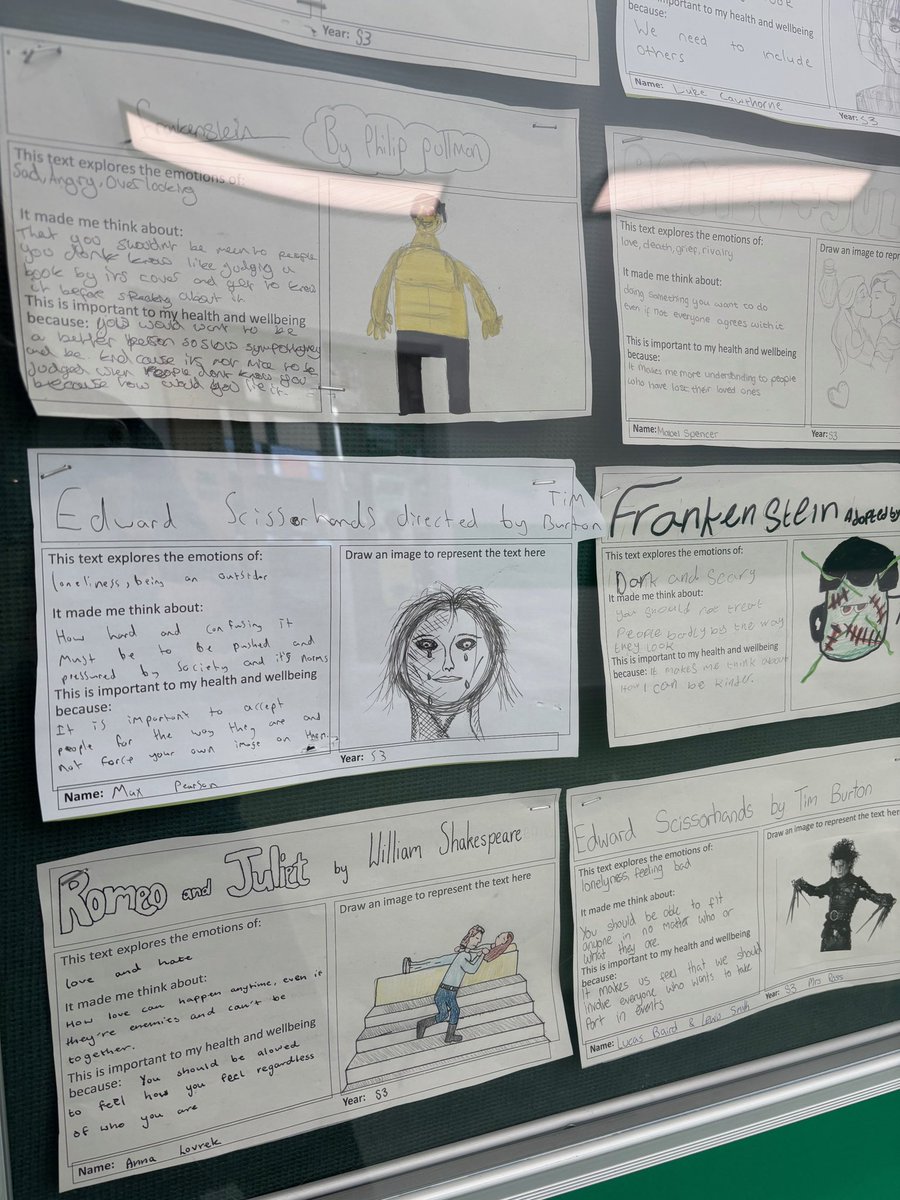 Year: S3
important to my health and wellbeing
because:
We need to include
others
Name: Luke Cawthorne
Year: S3
Frankenstein By Philip pullman
This text explores the emotions of:
Sad, Angry, Over looking
It made me think about:
That you shouldn't be mean to people
you don't know like judging a
book by its cover and get to know
it before speaking about it
This is important to my health and wellbeing
because: you would want to be
a better person so show sympathy
and be kind cause its not nice to be
judged when people dont know you
because how would you like it.
This text explores the emotions of:
love, death, grief, rivalry
It made me think about:
doing something you want to do
even if not everyone agrees with it
This is important to my health and wellbeing
because:
It makes me more understanding to people
who have lost their loved ones
Draw an image to repr
Name: Mabel Spencer
Year: S3
Edward Scissorhands directed by Tim
Burton
This text explores the emotions of:
loneliness, being an outsider
It made me think about:
How hard and confusing it
must be to be pushed and
pressured by society and it's norms
This is important to my health and wellbeing
because:
It is important to accept
people for the way they are and
not force your own image on them.
Draw an image to represent the text here
Year: S3
Name: Max Pearson
Frankenstein Adopted by
This text explores the emotions of:
Dark and Scary
It made me think about:
you should not treat
people badly by the way
they look
This is important to my health and wellbeing
because: It makes me think about
How I can be kinder.
Romeo and Juliet by William Shakespeare
This text explores the emotions of:
love and hate
It made me think about:
How love can happen anytime, even if
they're enemies and can't be
together.
This is important to my health and wellbeing
because: You should be alowed
to feel how you feel regardless
of who you are
Draw an image to represent the text here
Year: S3
Name: Anna Lovrek
Edward Scissorhands by Tim Burton
This text explores the emotions of:
lonelyness, feeling bad
It made me think about:
You should be able to fit
anyone in no matter who or
what they are
This is important to my health and wellbeing
because:
It makes us feel that we should
involve everyone who wants to take
Part in events
Draw an image to represent the text here
Year: S3 Mrs
Name: Lucas Baird & Lewis Smith